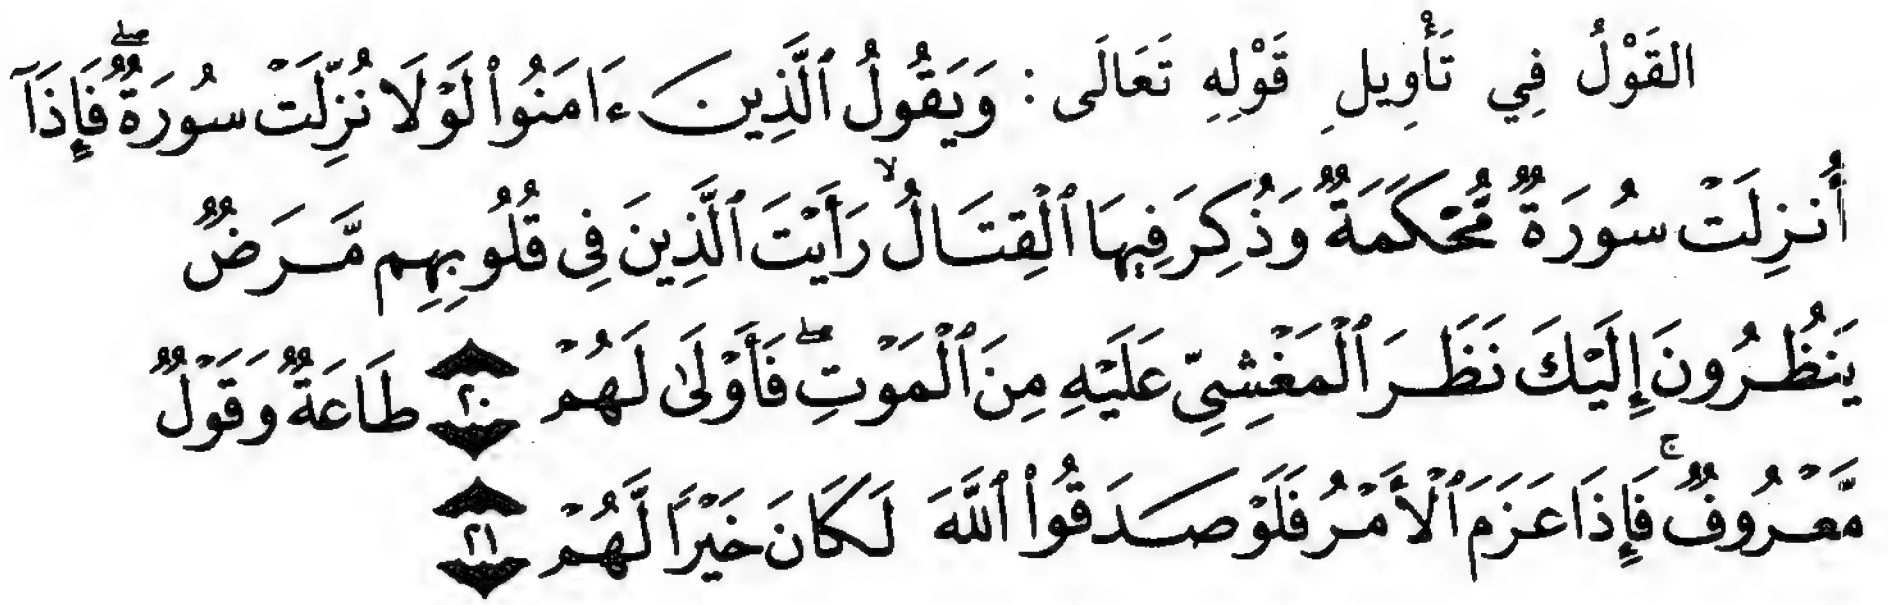 القَوْلُ فِي تَأْوِيلِ قَوْلِهِ تَعَالَى : وَيَقُولُ ٱلَّذِينَ ءَامَنُوا۟ لَوْلَا نُزِّلَتْ سُورَةٌۖ فَإِذَآ
أُنزِلَتْ سُورَةٌ مُّحْكَمَةٌ وَذُكِرَ فِيهَا ٱلْقِتَالُۙ رَأَيْتَ ٱلَّذِينَ فِى قُلُوبِهِم مَّرَضٌ
يَنظُرُونَ إِلَيْكَ نَظَرَ ٱلْمَغْشِىِّ عَلَيْهِ مِنَ ٱلْمَوْتِۖ فَأَوْلَىٰ لَهُمْ ٢٠ طَاعَةٌ وَقَوْلٌ
مَّعْرُوفٌۚ فَإِذَا عَزَمَ ٱلْأَمْرُ فَلَوْ صَدَقُوا۟ ٱللَّهَ لَكَانَ خَيْرًا لَّهُمْ ٢١